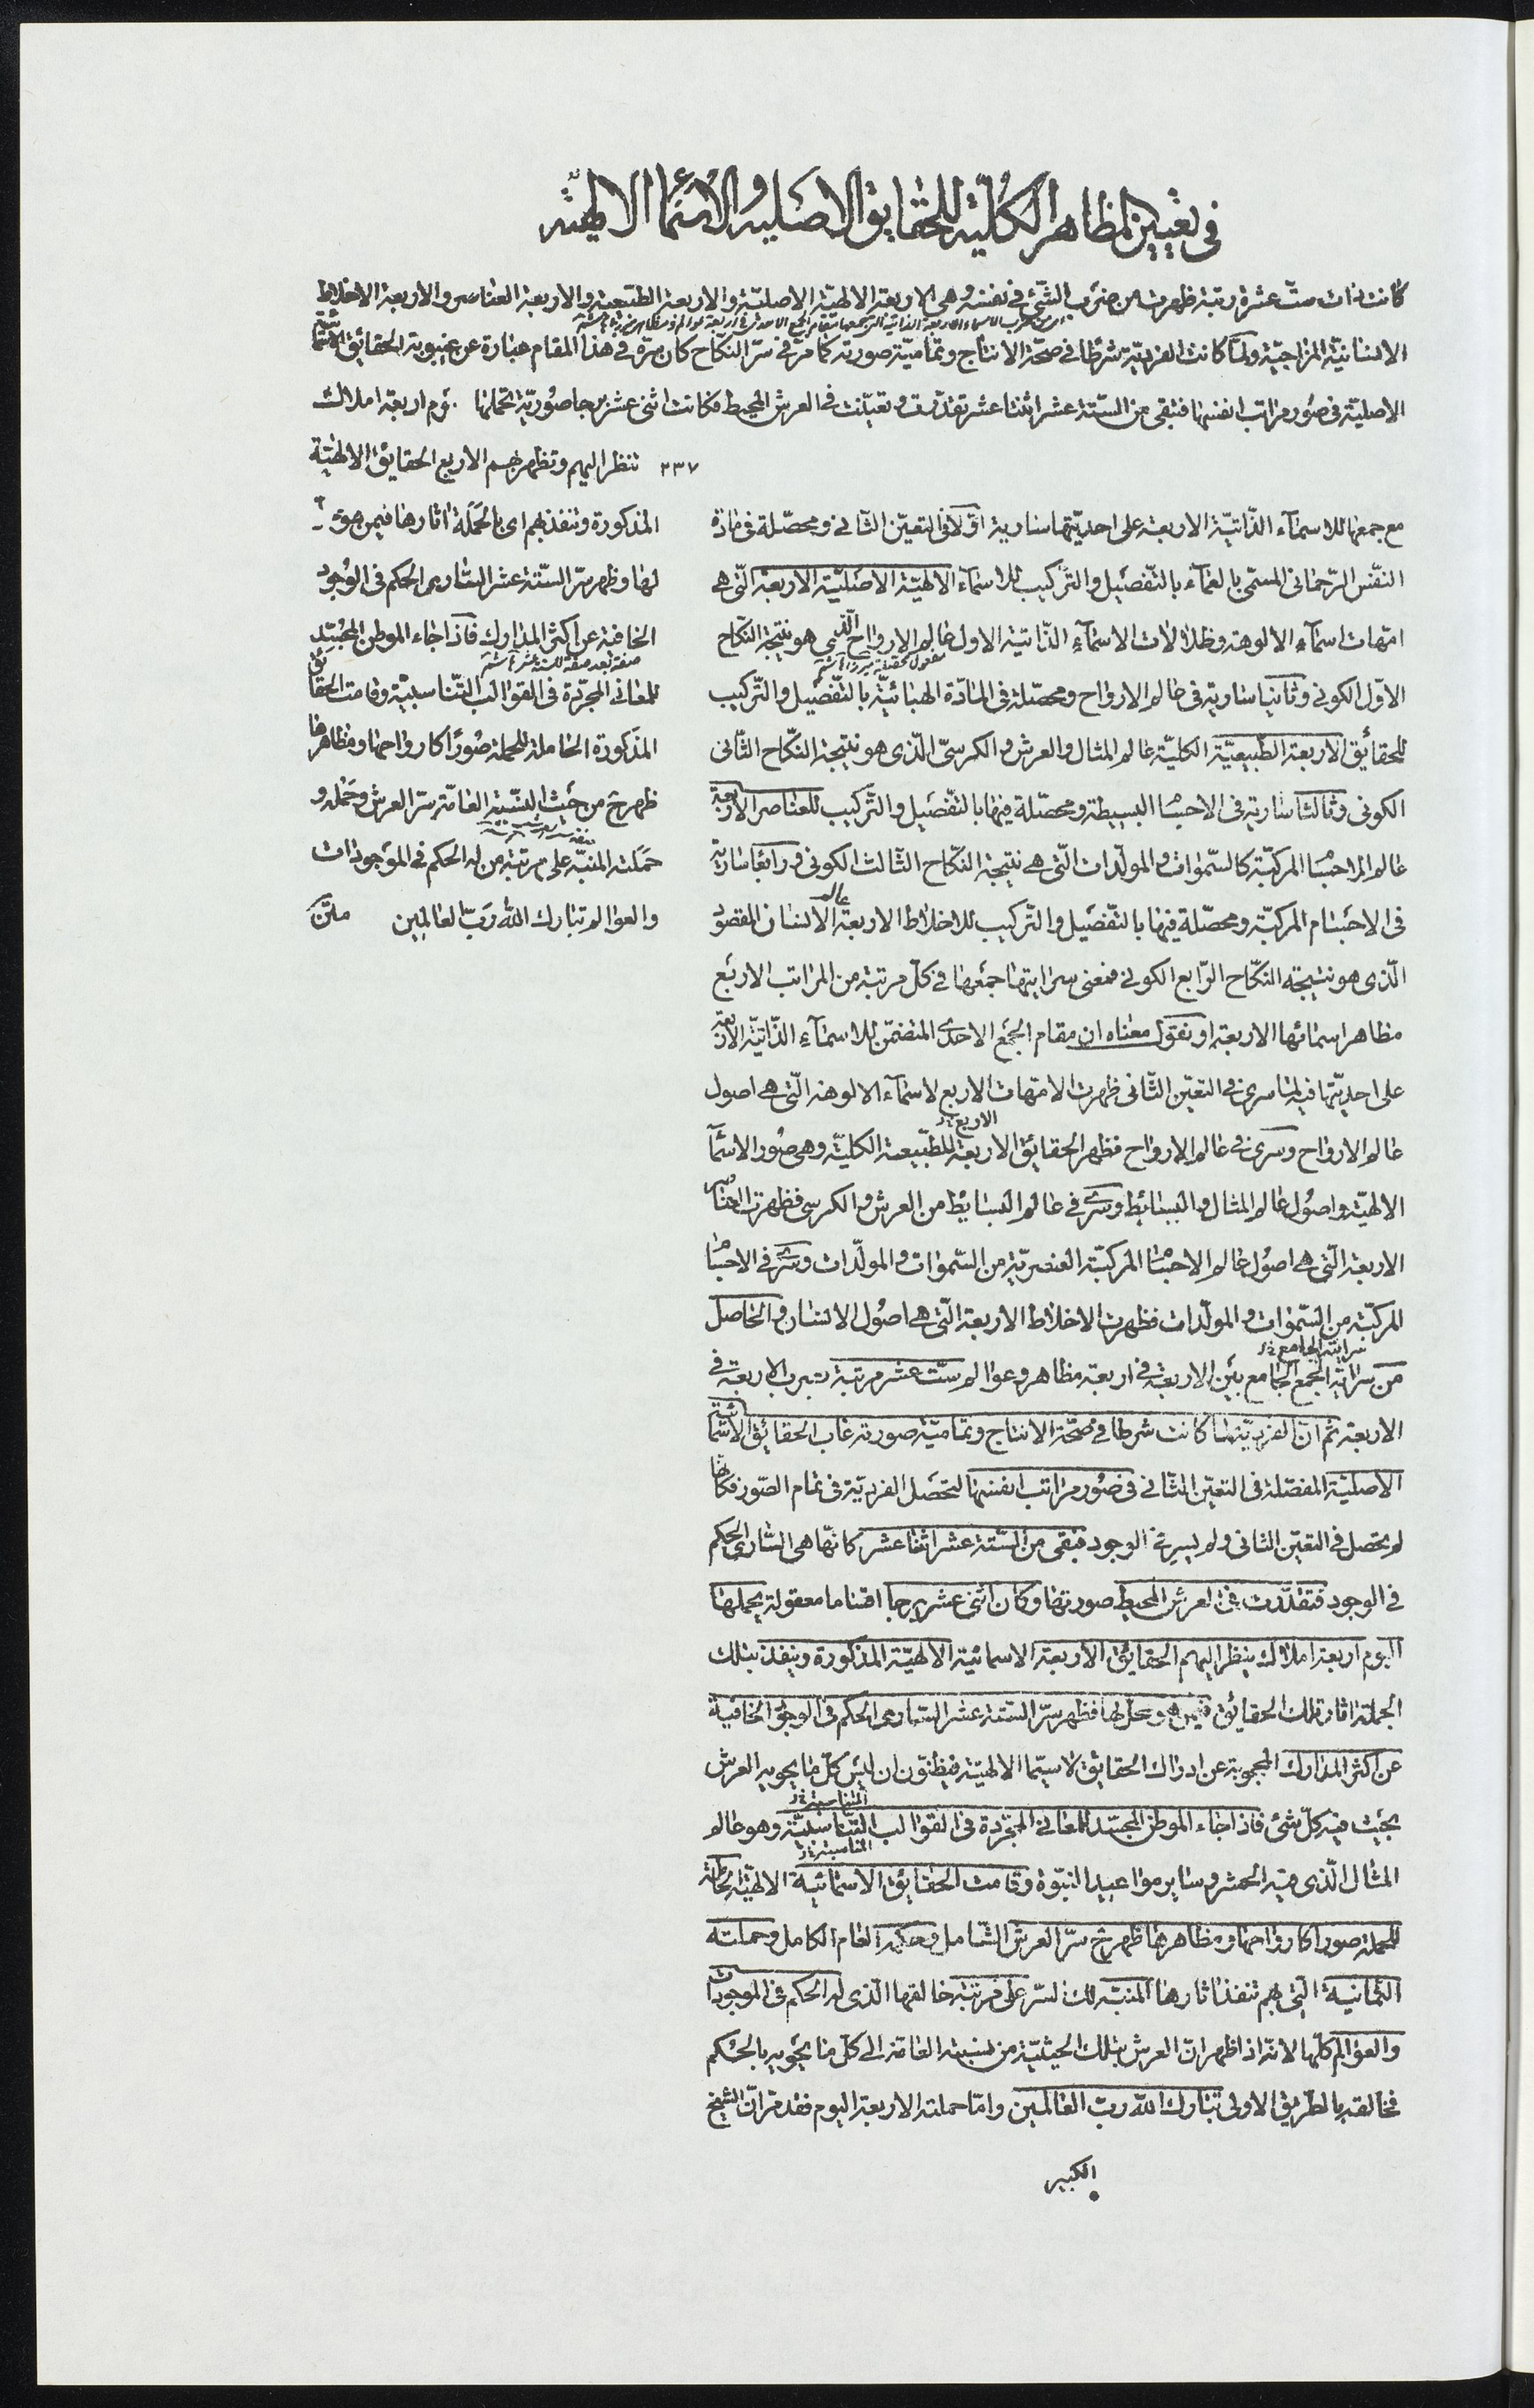 في تعيين المظاهر الكلّيّة للحقايق الاصليه والاسما الالهيّه
كانت ذات ستّ عشرة رتبة ظهرت من ضرب الشّئ في نفسه وهي الاربعة الالهيّة الاصليّة والاربعة الطّبيعية والاربعة العناصر والاربعة الاخلاط
الانسانيّة المزاجيّة ولمّا كانت الفرديّة شرطا في صحّة الانتاج وتماميّة صورته كما مرّ في سرّ النكاح كان مرّة في هذا المقام عبارة عن غيبوبة الحقائق الاسمائيّة
الاصليّة في صور مراتب انفسها فتبقى من السّتة عشر اثنتا عشر تقدّرت وتعيّنت في العرش المحيط فكانت اثنى عشر برجا صوريّة تحملها اليوم اربعة املاك
٢٣٧ تنظر اليهم وتظهر بهم الاربع الحقايق الالهيّة
المذكورة وتنفذ بهم اى بالحملة آثارها فيمن هو
لها وظهر سرّ السّتة عشر السّارى الحكم في الوجود
الخافية عن اكثر المدارك فاذا جاء الموطن المجسّد
صفة بعد صفة للستة عشر
للمعاني المجرّدة في القوالب التّناسبيّة وقامت الحقائق
المذكورة الحاملة للحملة صورا كارواحها ومظاهرها
ظهرح من حيث النسّبة العامّة سرّ العرش وحمله و
حملته المنبّه على مرتبة من له الحكم في الموجودات
والعوالم تبارك الله ربّ العالمين متن
مع جمعها للاسماء الذّاتيّة الاربعة على احديّتها سارية اوّلا في التعيّن الثّاني ومحصّلة في مادّة
النّفس الرّحماني المسمّى بالعماء بالتّفصيل والتّركيب للاسماء الالهيّة الاصليّة الاربعة الّتي هي
امّهات اسماء الالوهة وظلالات الاسماء الذّاتية الاول عالم الارواح الّذي هو نتيجة النّكاح
الاوّل الكوني وثانيا سارية في عالم الارواح ومحصّلة في المادّة الهبائيّة بالتّفصيل والتّركيب
للحقائق الاربعة الطّبيعيّة الكليّة عالم المثال والعرش والكرسيّ الّذى هو نتيجة النّكاح الثّاني
الكوني وثالثا سارية في الاجسام البسيطة ومحصّلة فيها بالتّفصيل والتّركيب للعناصر الاربعة
عالم الاجسام المركّبة كالسّموات والمولّدات الّتي هي نتيجة النّكاح الثّالث الكوني ورابعا سارية
عالم
في الاجسام المركّبة ومحصّلة فيها بالتّفصيل والتّركيب للاخلاط الاربعة الانسان المقصود
الّذى هو نتيجة النكّاح الرّابع الكوني فمعنى سرايتها جمعها في كلّ مرتبة من المراتب الاربع
مظاهر اسمائها الاربعة او نقول معناه ان مقام الجمع الاحدى المتضمّن للاسماء الذّاتيّة الاربعة
على احديّتها فيه لمّا سرى في التعيّن الثّاني ظهرت الامّهات الاربع لاسماء الالوهة الّتي هي اصول
الاربع
عالم الارواح وسرى في عالم الارواح فظهر الحقائق الاربعة للطّبيعة الكليّة وهي صور الاسماء
الالهيّة واصول عالم المثال والبسائط وسرى في عالم البسايط من العرش والكرسي فظهرت العناصر
الاربعة الّتي هي اصول عالم الاجسام المركّبة العنصريّة من السّموات والمولّدات وسرى في الاجسام
المركّبة من السّموات والمولّدات فظهرت الاخلاط الاربعة الّتي هي اصول الانسان والحاصل
سراية الجامع
من سراية الجمع الجامع بين الاربعة في اربعة مظاهر وعوالم ستّ عشر مرتبة بضرب الاربعة في
الاربعة ثم انّ الفرديّة لمّا كانت شرطا في صحّة الانتاج وتماميّة صورته غاب الحقائق الاسمائيّة
الاصليّة المفصّلة في التعيّن الثّاني في صور مراتب انفسها لتحصل الفرديّة في تمام الصّور فكانها
لم يحصل في التعيّن الثاني ولم يسر في الوجود فبقى من السّتة عشر اثنا عشر كانّها هي السّارى الحكم
في الوجود فتقدّرت في العرش المحيط صورتها وكان اثنى عشر برجا اقساما معقولة يحملها
اليوم اربعة املاك ينظر اليهم الحقائق الاربعة الاسمائيّة الالهيّة المذكورة وينفذ بتلك
الجملة آثار تلك الحقائق فيمن هو محلّ لها فظهر سرّ السّتة عشر السّارى الحكم في الوجود الخافية
عن اكثر المدارك المحجوبة عن ادراك الحقائق لا سيّما الالهيّة فيظنّون ان ليس كلّ ما يحويه العرش
المناسبة
بحيث فيه كلّ شئ فاذا جاء الموطن المجسّد للمعاني المجرّدة في القوالب التّناسبيّة وهو عالم
المثال الّذى فيه الحشر وساير مواعيد النبوّة وقامت الحقائق الاسمائية الالهيّة الحاملة
للحملة صورا كارواحها ومظاهرها ظهرح سرّ العرش الشّامل وحكمه العام الكامل وحملته
الثّمانية الّتي بهم تنفذ آثارها المنبّه ذلك السّر على مرتبة خالقها الّذى له الحكم في الموجودات
والعوالم كلّها لانّه اذا ظهر انّ العرش بتلك الحيثيّة من نسبته العامّة الى كلّ ما يحويه بالحكم
فخالقه بالطريق الاولى تبارك الله ربّ العالمين وامّا حملته الاربعة اليوم فقد مرّ انّ الشيخ
الكبير